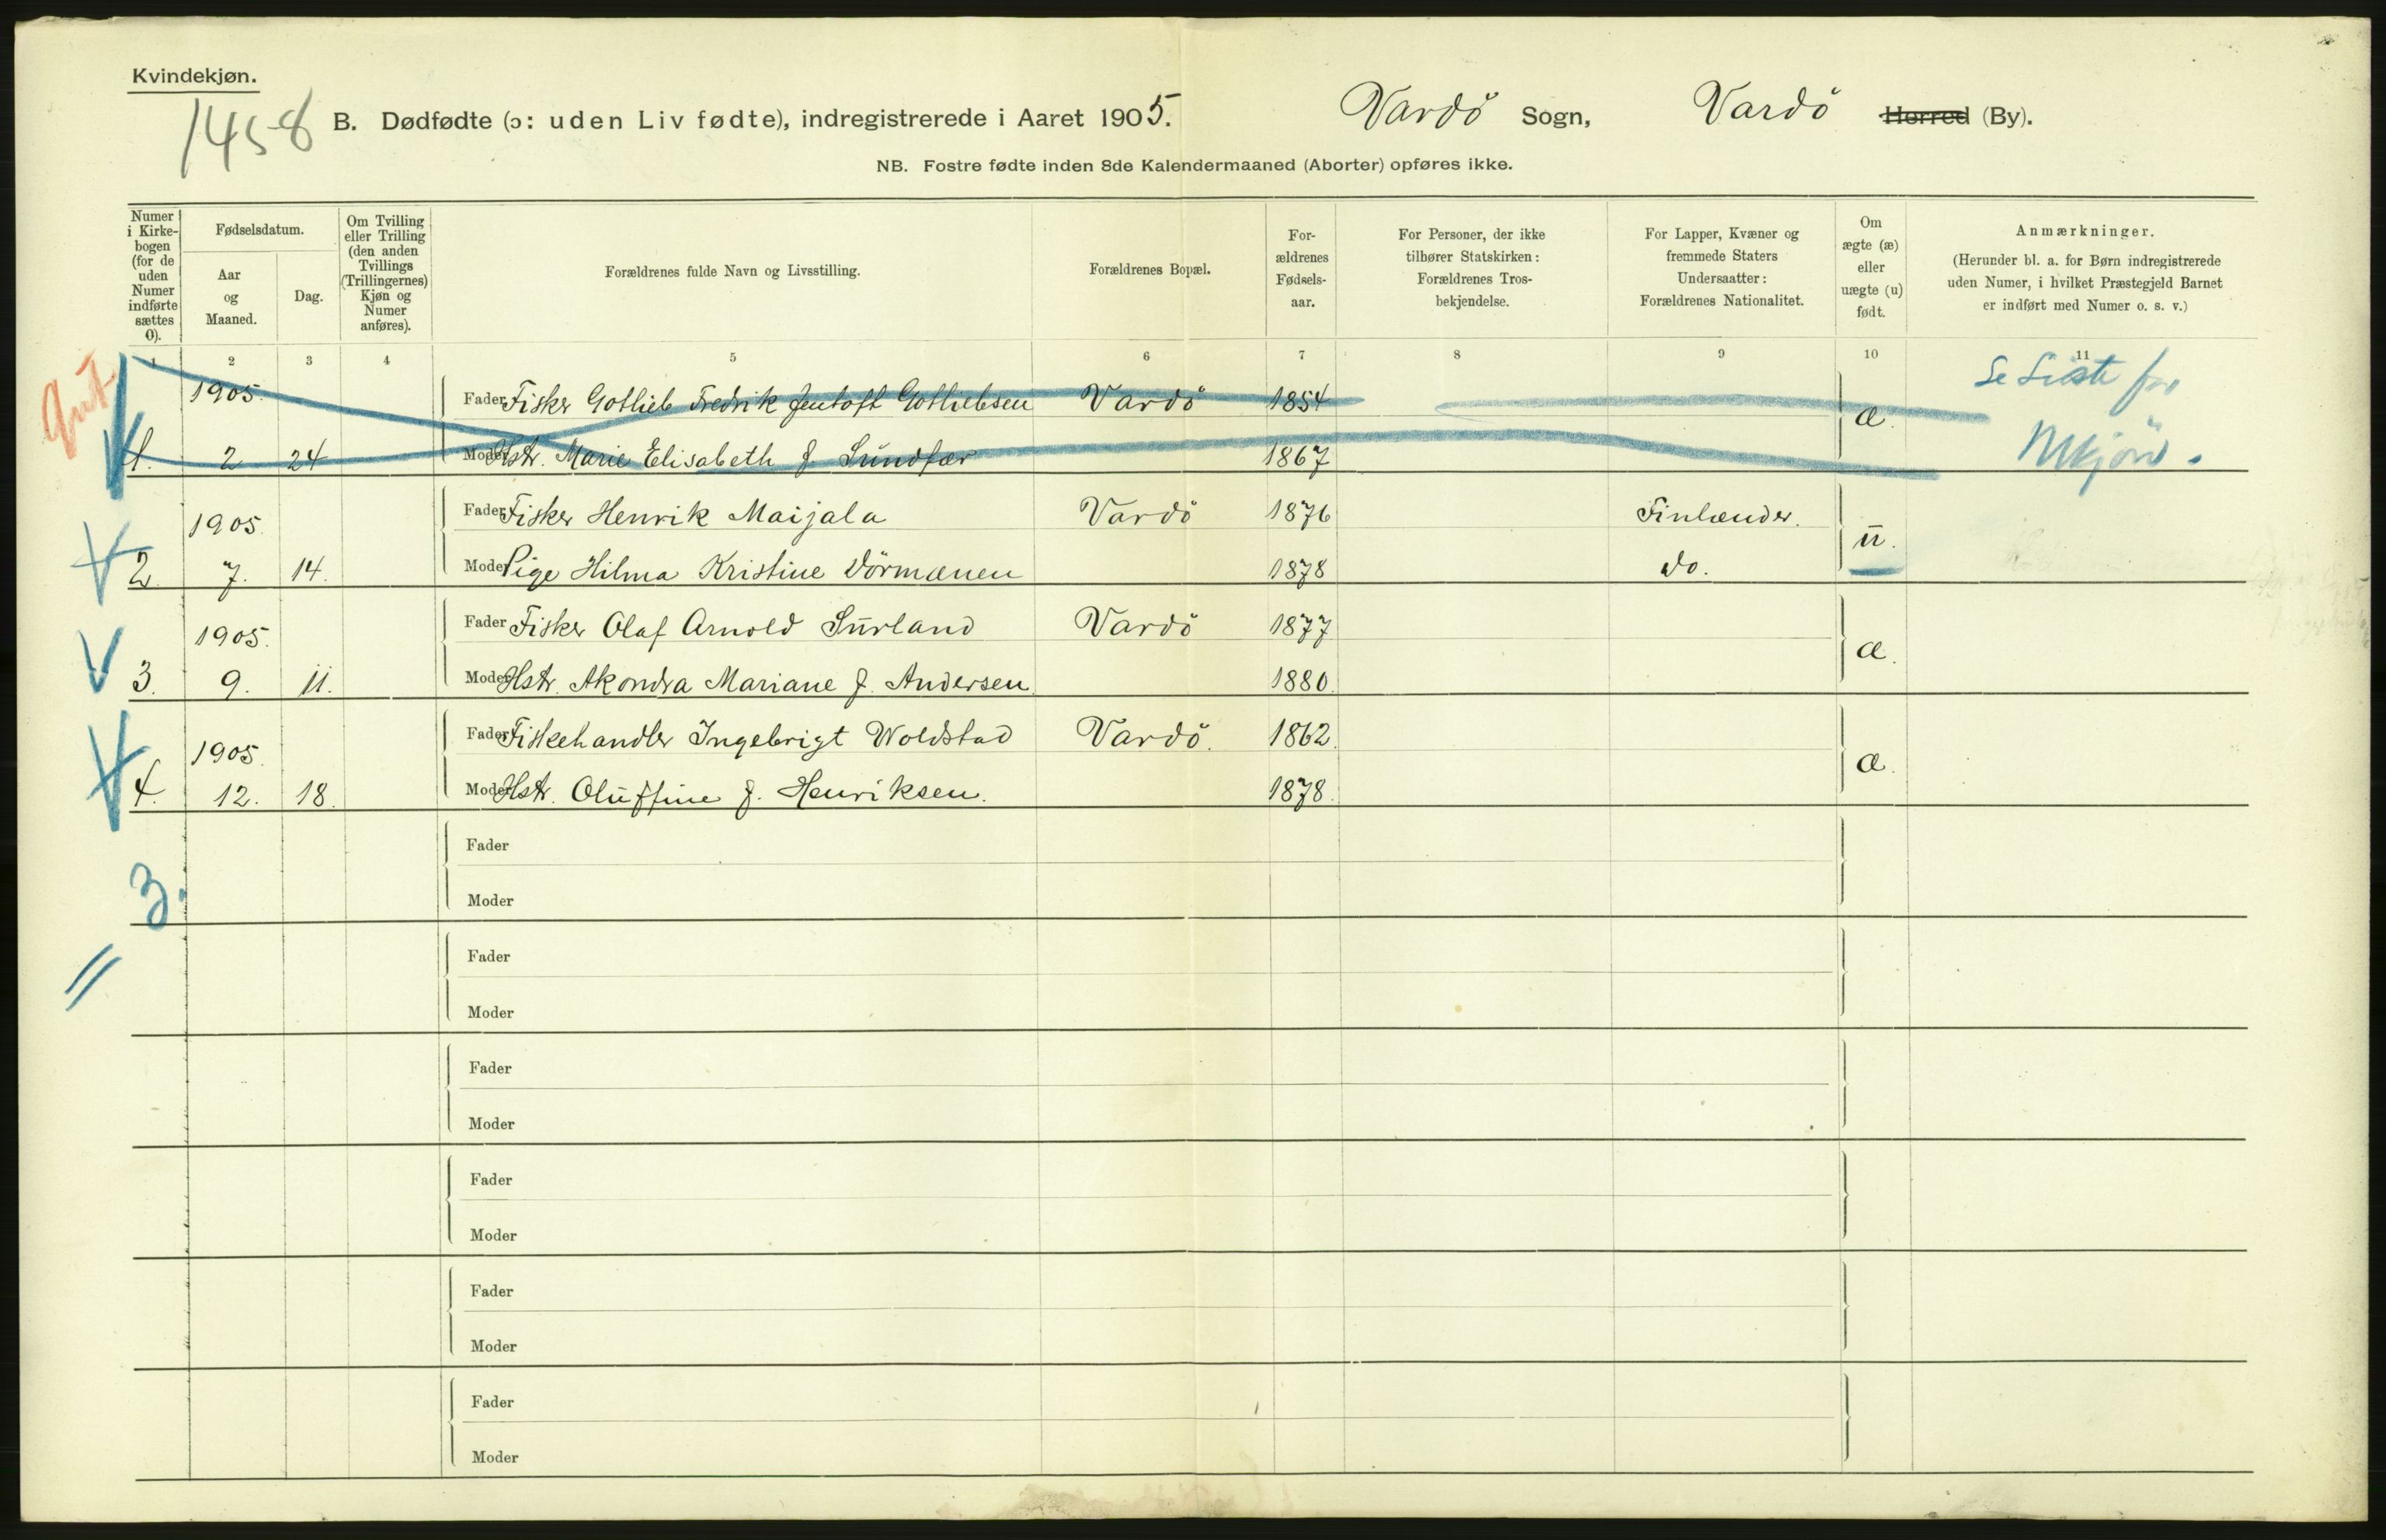 Kvindekjøn.
1458
B. Dødfødte (ɔ: uden Liv fødte), indregistrerede i Aaret 1905. Vardö Sogn, Vardö Herred (By).
NB. Fostre fødte inden 8de Kalendermaaned (Aborter) opføres ikke.
Numer
i Kirke-
bogen
(for de
uden
Numer
indførte
sættes
0).
Fødselsdatum.
Aar
og
Maaned.
Dag.
Om Tvilling
eller Trilling
(den anden
Tvillings
(Trillingernes)
Kjøn og
Numer
anføres).
Forældrenes fulde Navn og Livsstilling.
Forældrenes Bopæl.
For-
ældrenes
Fødsels-
aar.
For Personer, der ikke
tilhører Statskirken:
Forældrenes Tros-
bekjendelse.
For Lapper, Kvæner og
fremmede Staters
Undersaatter:
Forældrenes Nationalitet.
Om
ægte (æ)
eller
uægte (u)
født.
Anmærkninger.
(Herunder bl. a. for Børn indregistrerede
uden Numer, i hvilket Præstegjeld Barnet
er indført med Numer o. s. v.)
1 2 3 4 5 6 7 8 9 10 11
1905. Fader Fisker Gotlieb Fredrik Jentoft Gotliebsen Vardö 1854 æ. Se Liste for
1. 2 24 Moder Hstr. Marie Elisabeth f. Sundfær 1867 Mkjön.
1905. Fader Fisker Henrik Maijala Vardö 1876 Finlænder. u.
2. 7. 14. Moder Pige Hilma Kristine Vörmænen 1878 do.
1905. Fader Fisker Olaf Arnold Surland Vardö 1877 æ.
3. 9. 11. Moder Hstr. Akondra Mariane f. Andersen 1880.
1905. Fader Fiskehandler Ingebrigt Woldstad Vardö. 1862. æ.
4. 12. 18. Moder Hstr. Oluffine f. Henriksen. 1878.
Fader
3.
Moder
Fader
Moder
Fader
Moder
Fader
Moder
Fader
Moder
Fader
Moder